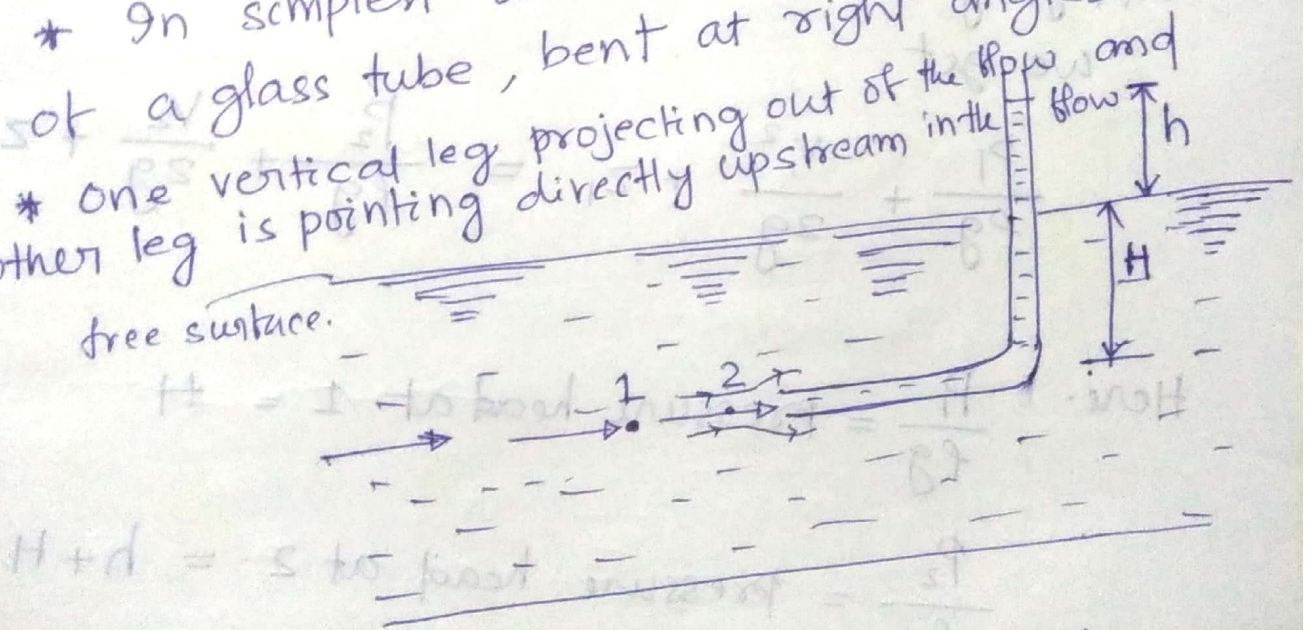 * In
of a glass tube, bent at right
* one vertical leg projecting out of the flow and
other leg is pointing directly upstream in the flow
h
H
free surface.
1
2